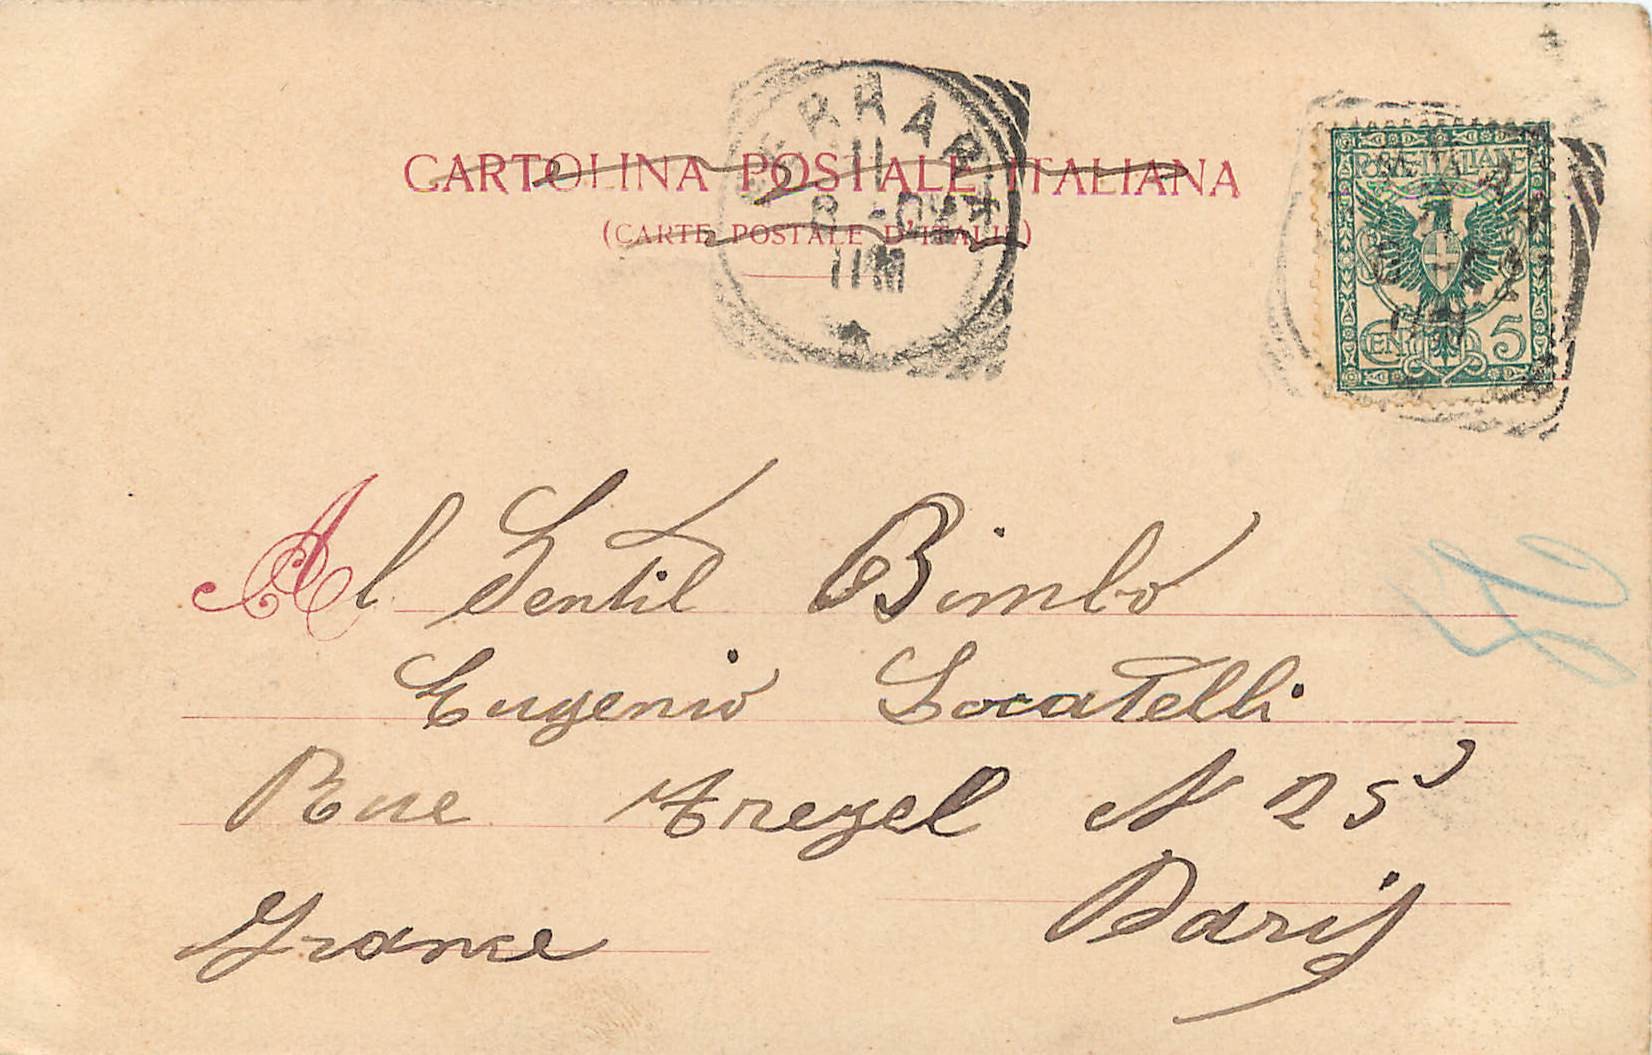 CARTOLINA POSTALE ITALIANA
(CARTE POSTALE D'ITALIE)
FERRARA
11
8-02
11M
POSTE ITALIANE
CENT. 5
Al Gentil Bimbo
Eugenio Locatelli
Rue Trezel N 25
Paris
France